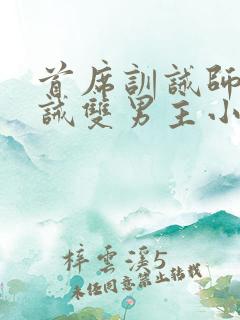 首席訓誡師
誡雙男主小
梓雲溪5
未經同意禁止轉載